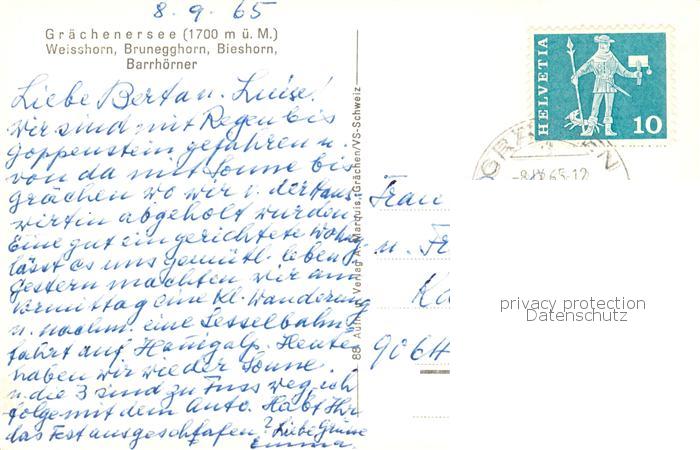 8. 9. 65
Grächenersee (1700 m ü. M.)
Weisshorn, Brunegghorn, Bieshorn,
Barrhörner
Liebe Berta u. Luise!
Wir sind mit Regen bis
Goppenstein gefahren u.
von da mit Sonne bis
Grächen wo wir v. der Haus-
wirtin abgeholt wurden.
Eine gut eingerichtete Wohng.
lässt es uns gemütl. leben.
Gestern machten wir am
Vormittag eine kl. Wanderung
u. nachm. eine Sesselbahn-
fahrt auf Hannigalp. Heute
haben wir wieder Sonne.
u. die 3 sind zu Fuss weg, ich
folge mit dem Auto. Habt Ihr
das Fest ausgeschlafen? Liebe Grüsse
Emma.
88 Auth. u. Verlag A. Marquis, Grächen/VS-Schweiz
HELVETIA
10
GRÄCHEN
-8.IX.65-12
Frau
u. Fr
Ka
9064
privacy protection
Datenschutz